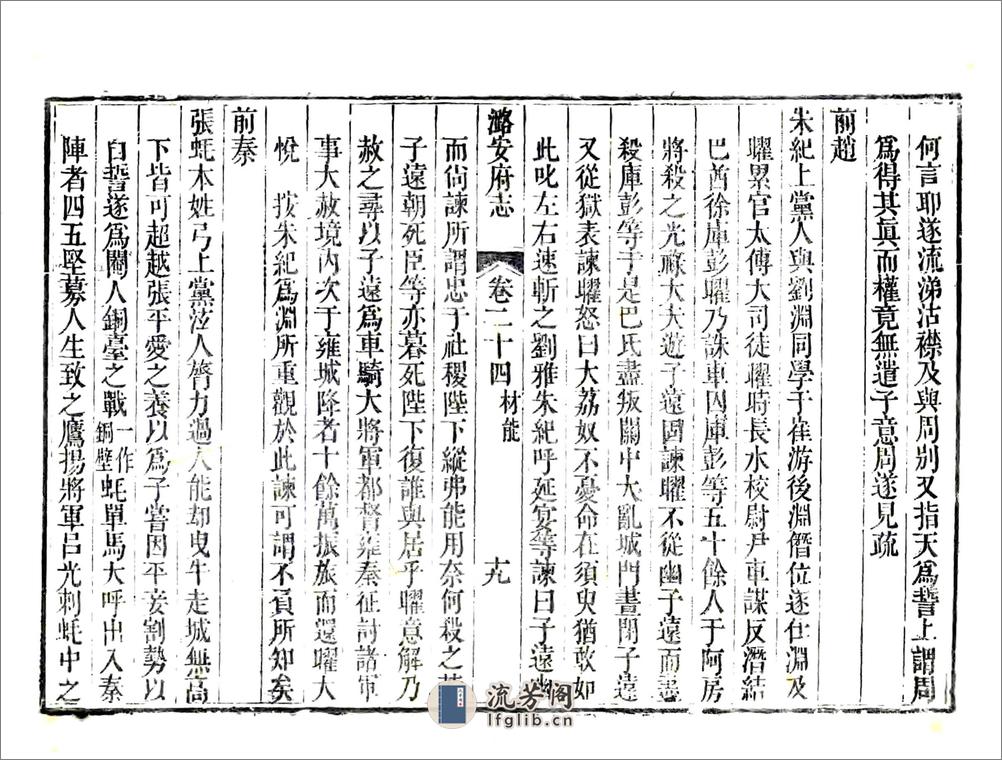 何言耶遂流涕沾襟及與周别又指天爲誓上謂周
爲得其眞而權竟無遣子意周遂見疏
前趙
朱紀上黨人與劉淵同學于崔游後淵僭位遂仕淵及
曜累官太傅大司徒曜時長水校尉尹車謀反潛結
巴酋徐庫彭曜乃誅車囚庫彭等五十餘人于阿房
將殺之光祿大大遊子遠固諫曜不從幽子遠而盡
殺庫彭等于是巴氏盡叛關中大亂城門晝閉子遠
又從獄表諫曜怒曰大荔奴不憂命在須臾猶敢如
此叱左右速斬之劉雅朱紀呼延宴等諫曰子遠幽
潞安府志 卷二十四 材能 十九
而尙諫所謂忠于社稷陛下縱弗能用奈何殺之若
子遠朝死臣等亦暮死陛下復誰與居乎曜意解乃
赦之尋以子遠爲車騎大將軍都督雍秦征討諸軍
事大赦境內次于雍城降者十餘萬振旅而還曜大
悅 按朱紀爲淵所重觀於此諫可謂不負所知矣
前秦
張蚝本姓弓上黨泫人膂力過人能却曳牛走城無高
下皆可超越張平愛之養以爲子嘗因平妾割勢以
自誓遂爲閹人銅臺之戰一作銅壁蚝單馬大呼出入秦
陣者四五堅募人生致之鷹揚將軍呂光刺蚝中之
流芳阁
lfglib.cn